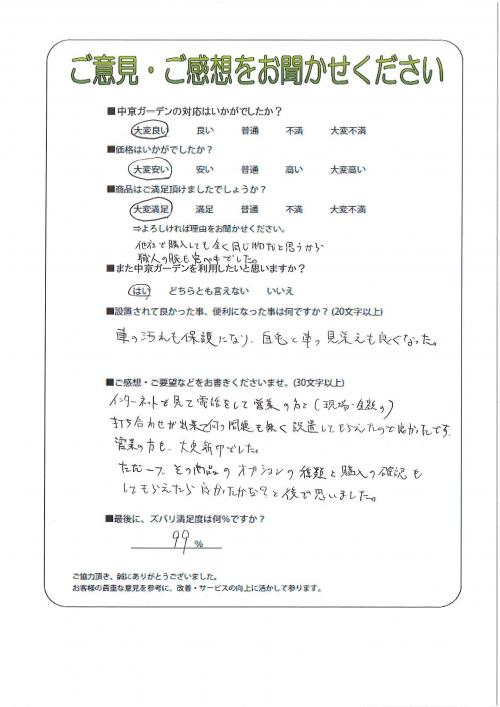 ご意見・ご感想をお聞かせください
■中京ガーデンの対応はいかがでしたか?
大変良い 良い 普通 不満 大変不満
■価格はいかがでしたか?
大変安い 安い 普通 高い 大変高い
■商品はご満足頂けましたでしょうか?
大変満足 満足 普通 不満 大変不満
⇒よろしければ理由をお聞かせください。
他社で購入しても全く同じ物だと思うから
職人の腕も見事でした。
■また中京ガーデンを利用したいと思いますか?
はい どちらとも言えない いいえ
■設置されて良かった事、便利になった事は何ですか? (20文字以上)
車の汚れも保護になり、自宅と車の見栄えも良くなった。
■ご感想・ご要望などをお書きくださいませ。(30文字以上)
インターネットを見て電話をして営業の方と(現場・金額の)
打ち合わせが出来て何の問題も無く設置してもらえたので良かったです。
営業の方も、大変親切でした。
ただ一つ、その商品のオプションの種類と購入の確認も
してもらえたら良かったかな?と後で思いました。
■最後に、ズバリ満足度は何%ですか?
99 %
ご協力頂き、誠にありがとうございました。
お客様の貴重な意見を参考に、改善・サービスの向上に活かして参ります。